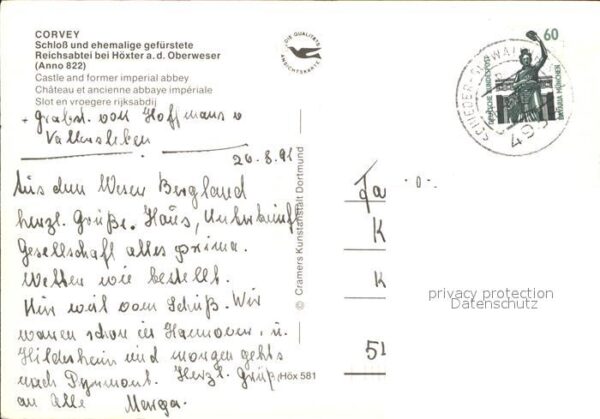 CORVEY
Schloß und ehemalige gefürstete
Reichsabtei bei Höxter a. d. Oberweser
(Anno 822)
Castle and former imperial abbey
Château et ancienne abbaye impériale
Slot en voegere rijksabdij
DIE QUALITÄTS
ANSICHTSKARTE
60
DEUTSCHE BUNDESPOST
BAVARIA MÜNCHEN
SCHIEDER-SCHWALENBERG
+ Grabst. von Hoffmans v
Vallersleben
26.8.91
Aus dem Weser Bergland
herzl. Grüße. Haus, Unterkunft
Gesellschaft alles prima.
Wetter wie bestellt.
Nur weit vom Schuß. Wir
waren schon in Hannover, u.
Hildesheim und morgen gehts
nach Pyrmont. Herzl. Grüße
an Alle
© Cramers Kunstanstalt Dortmund
Höx 581
Fa
-0-
K
K
51
privacy protection
Datenschutz